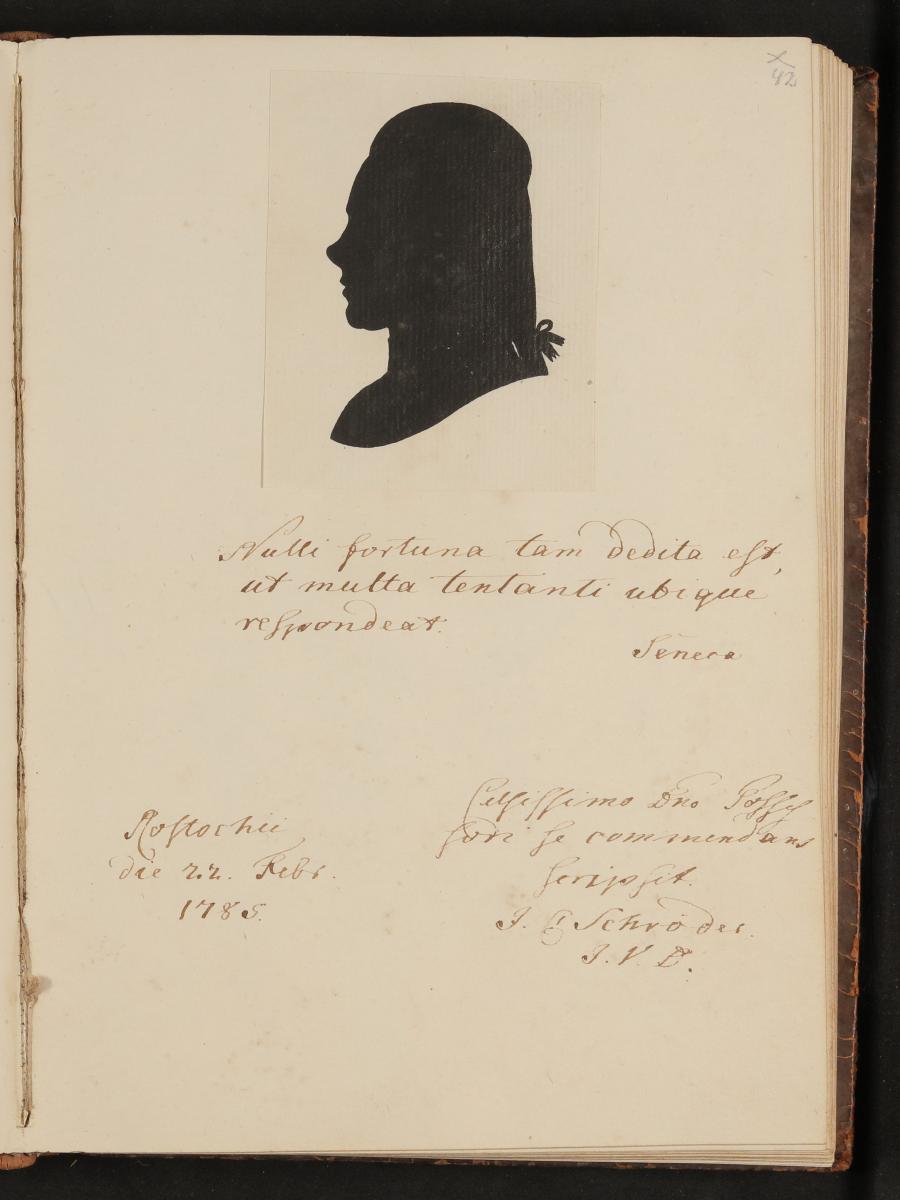 42
Nulli fortuna tam dedita est,
ut multa tentanti ubique
respondeat.
Seneca
Rostochii
die 22. Febr.
1785.
Celsissimo Dno Possessori
se commendans
scripsit.
J. Schröder.
J. V. D.